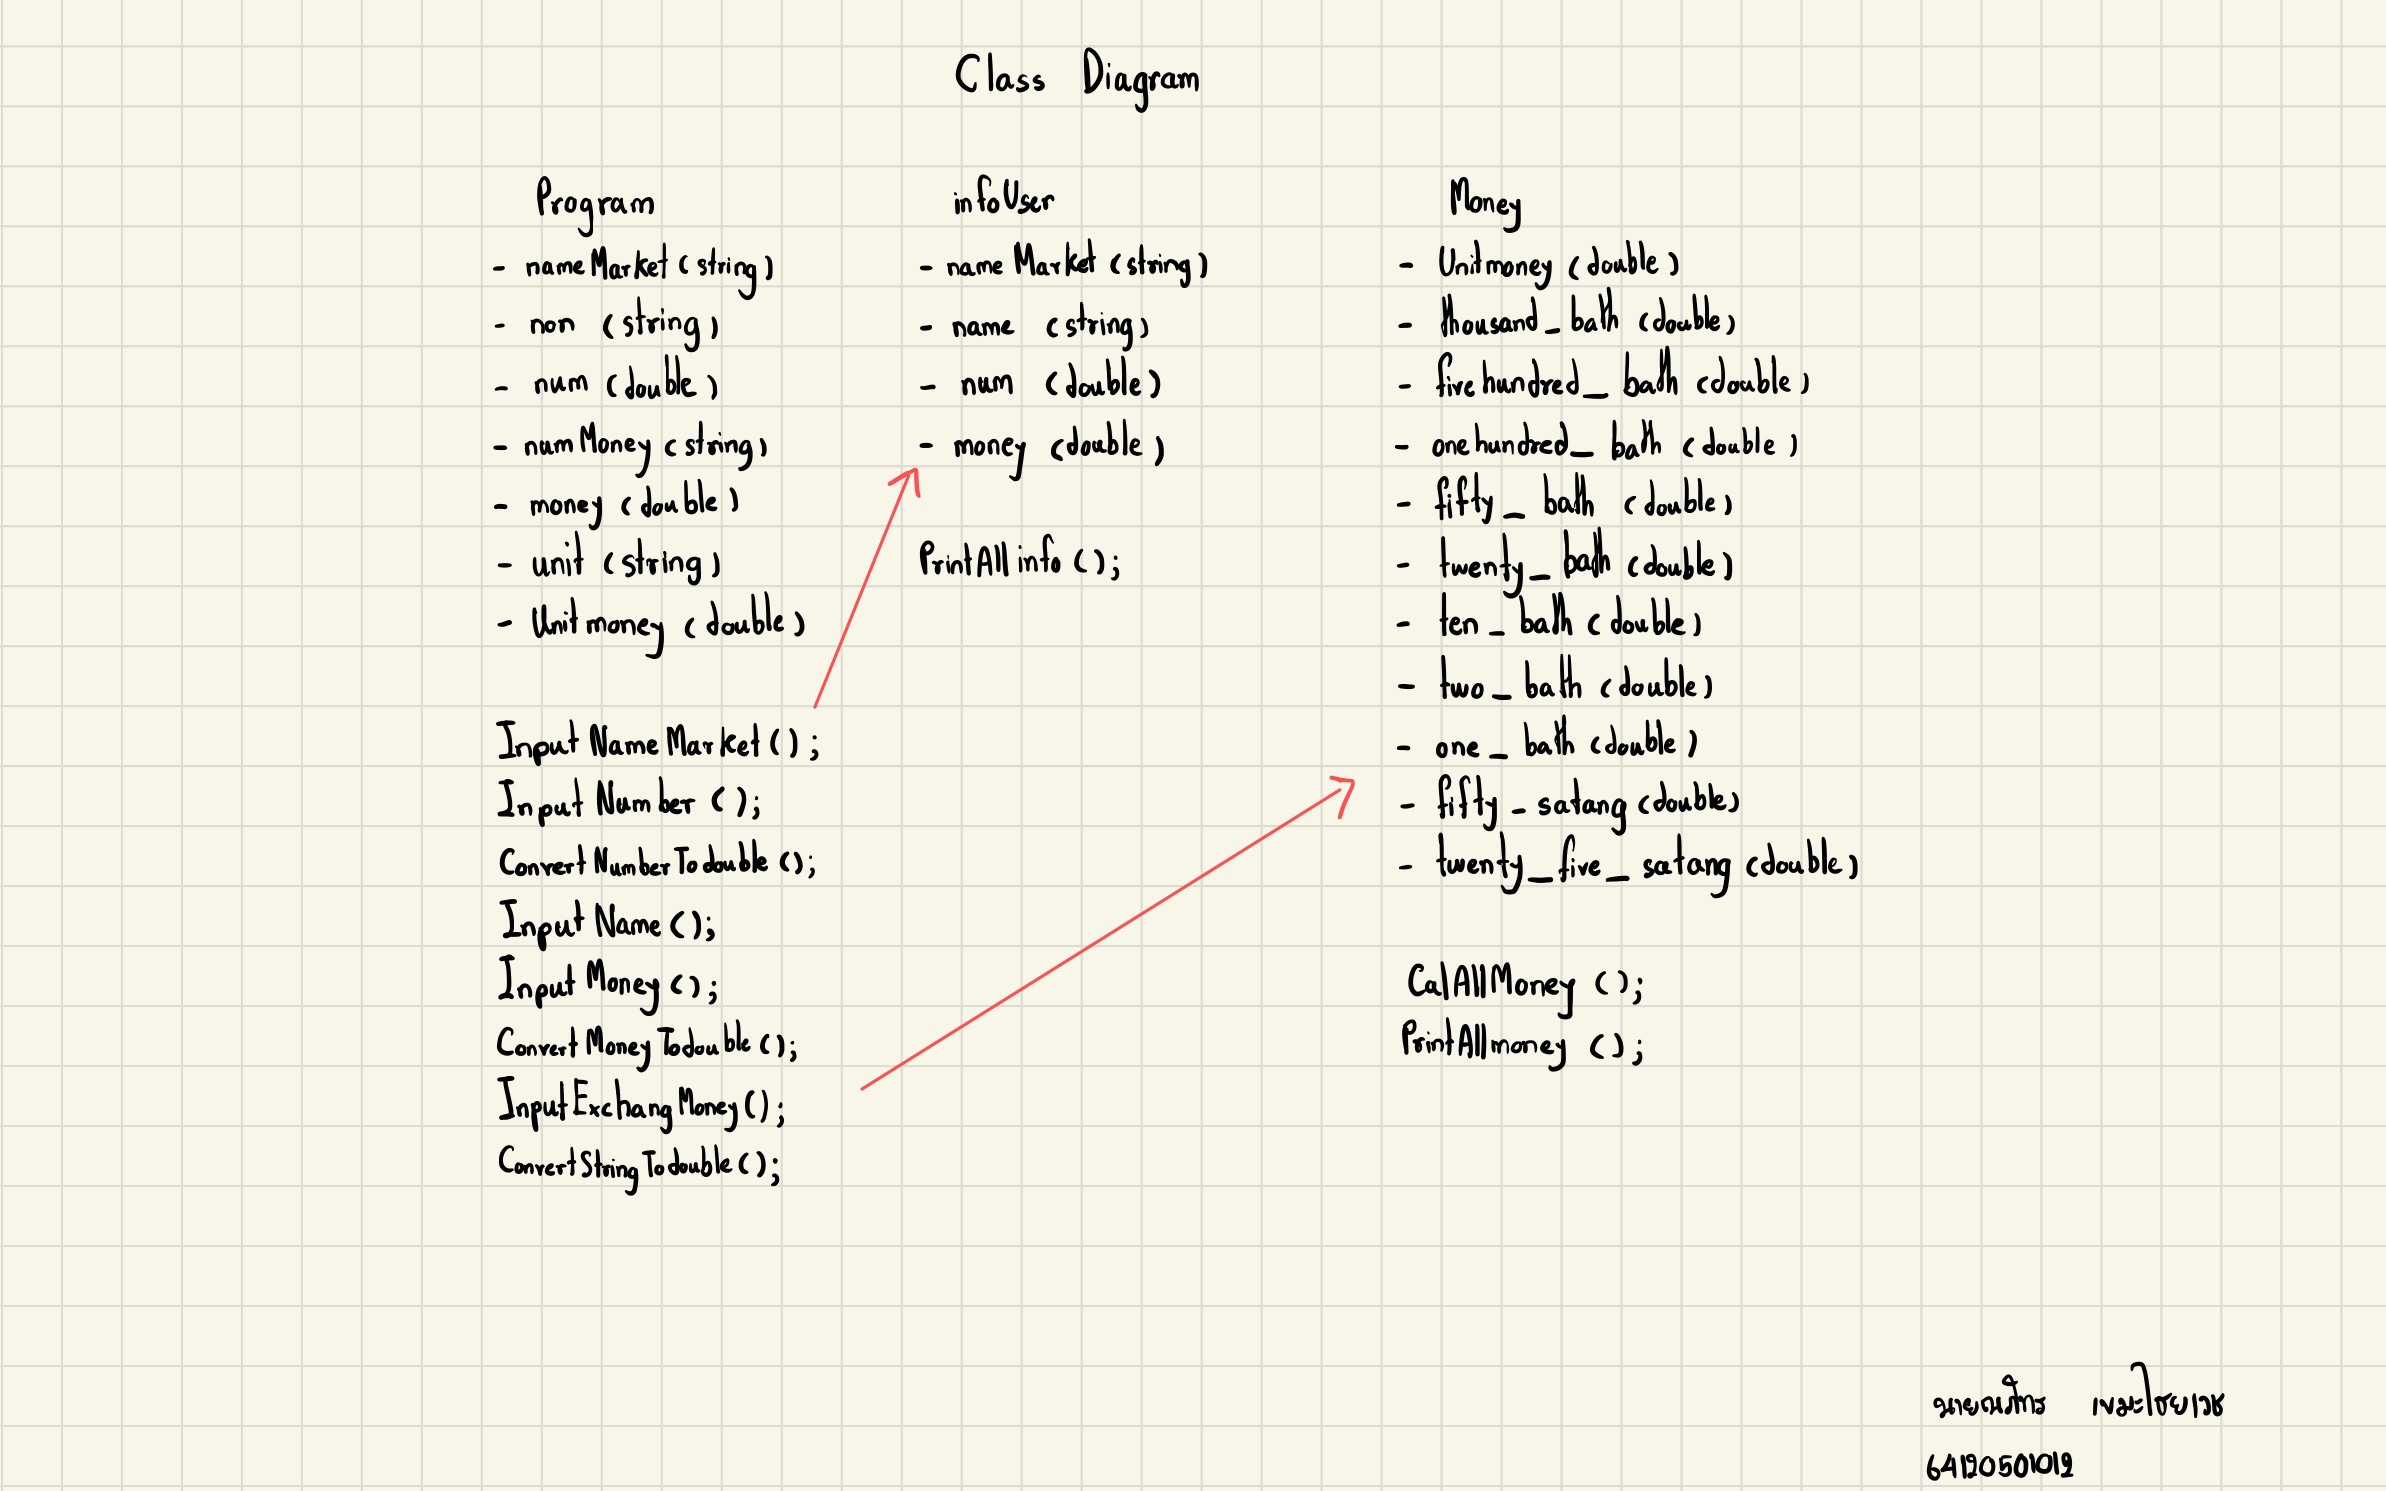 Class Diagram
Program
- nameMarket (string)
- non (string)
- num (double)
- numMoney (string)
- money (double)
- unit (string)
- Unitmoney (double)
InputNameMarket();
InputNumber();
ConvertNumberTodouble();
InputName();
InputMoney();
ConvertMoneyTodouble();
InputExchangMoney();
ConvertStringTodouble();
infoUser
- nameMarket (string)
- name (string)
- num (double)
- money (double)
PrintAllinfo();
Money
- Unitmoney (double)
- thousand_bath (double)
- fivehundred_bath (double)
- onehundred_bath (double)
- fifty_bath (double)
- twenty_bath (double)
- ten_bath (double)
- two_bath (double)
- one_bath (double)
- fifty_satang (double)
- twenty_five_satang (double)
CalAllMoney();
PrintAllmoney();
เขมะไชยเวช
64120501012